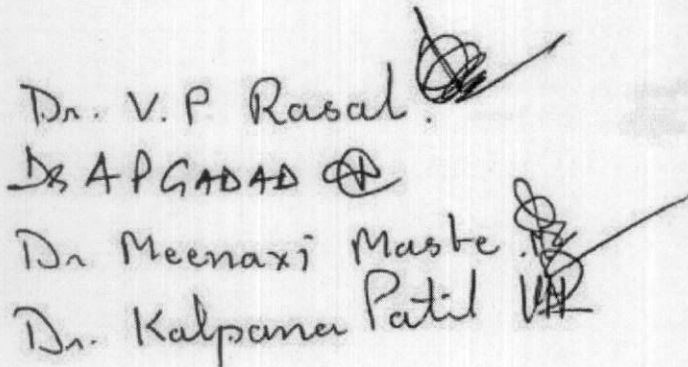 Dr. V. P. Rasal.
Dr A P GADAD
Dr Meenaxi Maste.
Dr. Kalpana Patil